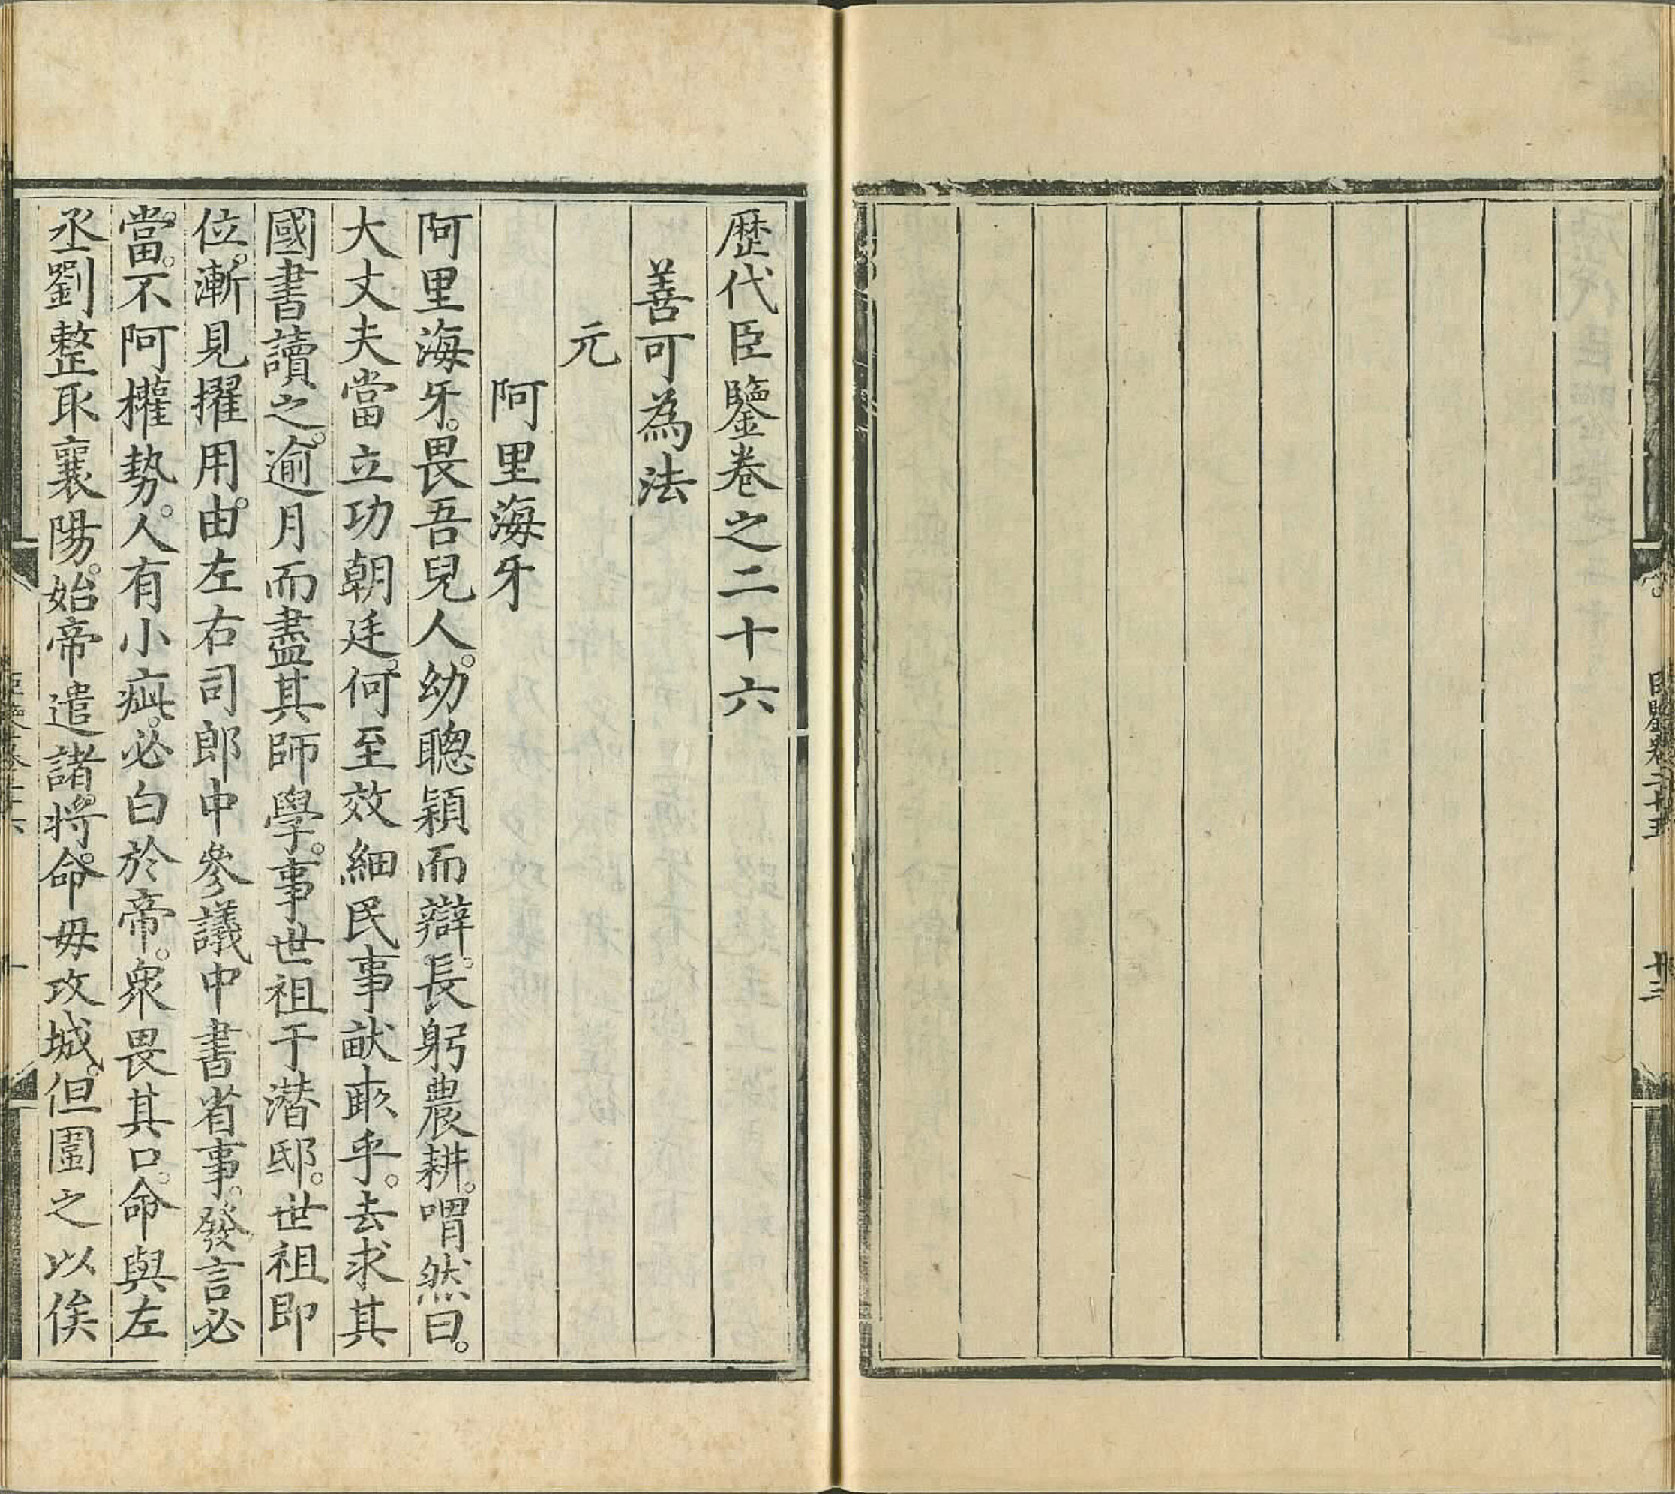 臣鑒卷二十五
十三
歷代臣鑒卷之二十六
善可為法
元
阿里海牙
阿里海牙。畏吾兒人。幼聰穎而辯。長躬農耕。喟然曰。
大丈夫當立功朝廷。何至效細民事畎畝乎。去求其
國書讀之。逾月而盡其師學。事世祖于潜邸。世祖即
位。漸見擢用。由左右司郎中參議中書省事。發言必
當。不阿權勢。人有小疵。必白於帝。衆畏其口。命與左
丞劉整取襄陽。始帝遣諸將。命毋攻城。但圍之以俟